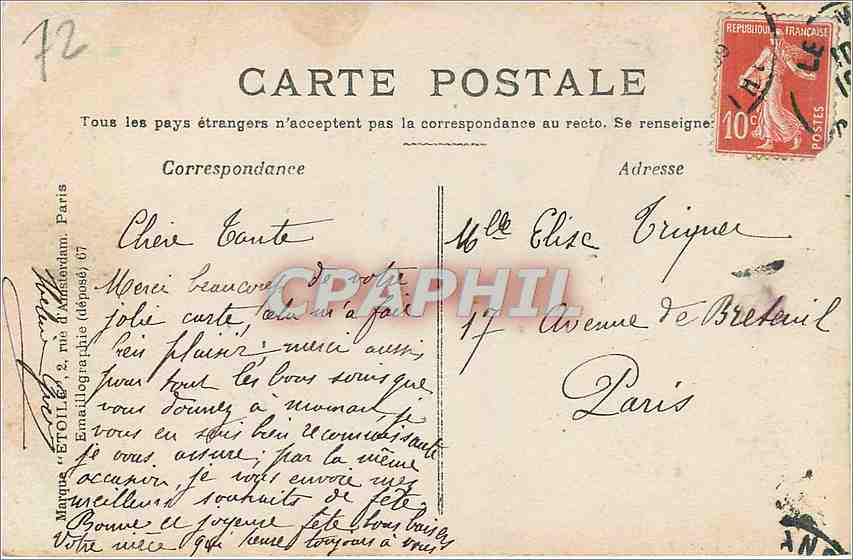 72
CARTE POSTALE
Tous les pays étrangers n'acceptent pas la correspondance au recto. Se renseigne
REPUBLIQUE FRANÇAISE
10c
POSTES
LE
Correspondance
Chère Tante
Merci beaucoup de votre
jolie carte, cela m'a fait
bien plaisir; merci aussi
pour tout les bons soins que
vous donnez à maman, je
vous en suis bien reconnaissante
je vous assure; par la même
occasion, je vous envoie mes
meilleurs souhaits de fête.
Bonne et joyeuse fête, bons baisers
Votre nièce qui pense toujours à vous
Adresse
Mlle Elise
17 Avenue de Breteuil
Paris
CPAPHIL
Marque "ETOILE", 2, rue d'Amsterdam. Paris
Emaillographie (déposé) 67